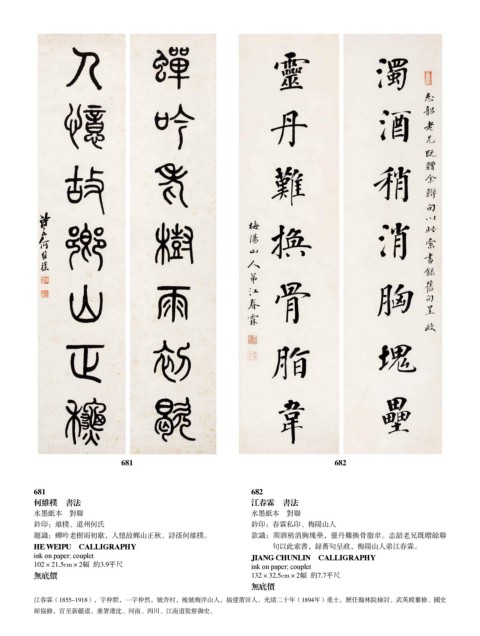 蟬吟老樹雨初歇
人憶故鄉山正龝
詩孫何維樸
濁酒稍消胸塊壘
志韶老兄既贈余聯句以此索書錄舊句呈政
靈丹難換骨脂韋
梅陽山人弟江春霖
681
682
681
何維樸　書法
水墨紙本　對聯
鈐印：維樸、道州何氏
題識：蟬吟老樹雨初歇，人憶故鄉山正秋。詩孫何維樸。
HE WEIPU　CALLIGRAPHY
ink on paper; couplet
102 × 21.5cm × 2幅　約3.9平尺
無底價
682
江春霖　書法
水墨紙本　對聯
鈐印：春霖私印、梅陽山人
款識：濁酒稍消胸塊壘，靈丹難換骨脂韋。志韶老兄既贈餘聯
句以此索書，錄舊句呈政，梅陽山人弟江春霖。
JIANG CHUNLIN　CALLIGRAPHY
ink on paper; couplet
132 × 32.5cm × 2幅　約7.7平尺
無底價
江春霖（1855–1918），字仲默，一字仲然、號杏村，晚號梅洋山人，福建莆田人。光緒二十年（1894年）進士，歷任翰林院檢討、武英殿纂修、國史
館協修，官至新疆道，兼署遼沈、河南、四川、江南道監察御史。